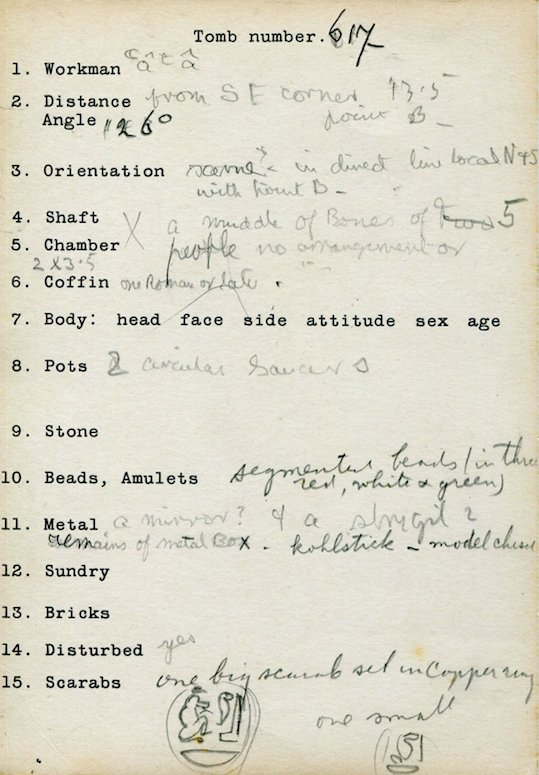 Tomb number. 617
1. Workman
2. Distance from S E corner 13.5
Angle 126° point B -
3. Orientation same? - in direct line Local N 45
with point B -
4. Shaft X a muddle of Bones of two 5
5. Chamber people no arrangement or
2 x 3.5
6. Coffin one Roman or late .
7. Body: head face side attitude sex age
8. Pots 2 circular saucers
9. Stone
10. Beads, Amulets segmented beads (in three
red, white & green)
11. Metal a mirror? & a strygil ?
remains of metal Box - kohlstick - model chisel
12. Sundry
13. Bricks
14. Disturbed yes
15. Scarabs one big scarab set in copper ring
one small